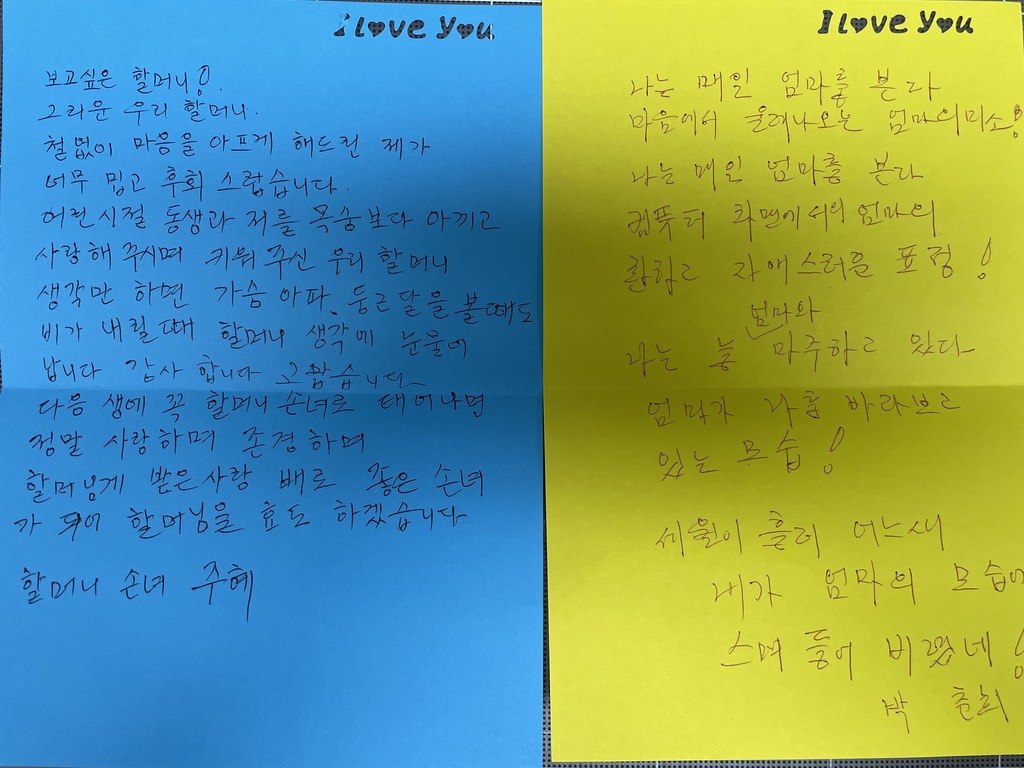 I love You
보고싶은 할머니!
그리운 우리 할머니.
철없이 마음을 아프게 해드린 제가
너무 밉고 후회 스럽습니다.
어린시절 동생과 저를 목숨보다 아끼고
사랑해 주시며 키워 주신 우리 할머니
생각만 하면 가슴 아파. 둥근 달을 볼때도
비가 내릴때 할머니 생각에 눈물이
납니다 감사 합니다 고맙습니다
다음 생에 꼭 할머니 손녀로 태어나면
정말 사랑하며 존경하며
할머님께 받은사랑 배로 좋은 손녀
가 되어 할머님을 효도 하겠습니다
할머니 손녀 주혜
I love You
나는 매일 엄마를 본다
마음에서 올레나오는 엄마의미소!
나는 매일 엄마를 본다
컴퓨터 화면에서의 엄마의
환하고 자애스러운 표정!
나는 늘 엄마와 마주하고 있다
엄마가 나를 바라보고
있는 모습!
세월이 흘러 어느새
내가 엄마의 모습에
스며 들어 버렸네!
박